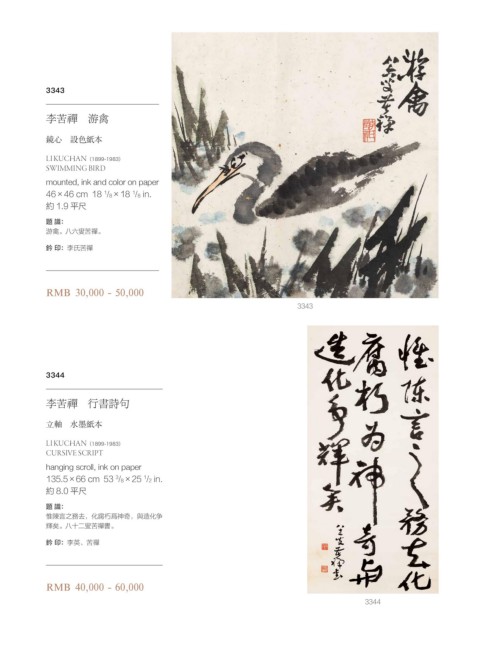 3343
李苦禪　游禽
鏡心　設色紙本
LI KUCHAN (1899-1983)
SWIMMING BIRD
mounted, ink and color on paper
46 × 46 cm 18 1/8 × 18 1/8 in.
約 1.9 平尺
題識：
游禽。八六叟苦禪。
鈐印：李氏苦禪
RMB 30,000 - 50,000
游禽
八六叟苦禪
3343
3344
李苦禪　行書詩句
立軸　水墨紙本
LI KUCHAN (1899-1983)
CURSIVE SCRIPT
hanging scroll, ink on paper
135.5 × 66 cm 53 3/8 × 25 1/2 in.
約 8.0 平尺
題識：
惟陳言之務去，化腐朽爲神奇，與造化爭
輝矣。八十二叟苦禪書。
鈐印：李英、苦禪
RMB 40,000 - 60,000
惟陈言之务去化
腐朽为神奇与
造化争輝矣
3344